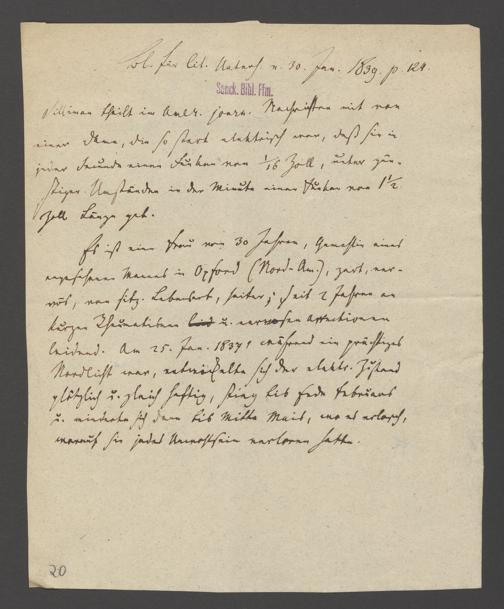 Bl. für lit. Unterh. v. 30. Jan. 1839. p. 124.
Senck. Bibl. Ffm.
Silliman theilt im Amer. journ. Nachrichten mit von
einer Dame, die so stark elektrisch war, daß sie in
jeder Secunde einen Funken von 1/16 Zoll, unter gün-
stigen Umständen in der Minute einen Funken von 1 1/2
Zoll Länge gab.
Es ist eine Frau von 30 Jahren, Gemahlin eines
angesehenen Mannes in Oxford (Nord-Am.), zart, ner-
vös, von sitz. Lebensart, heiter; seit 2 Jahren an
kurzen Rheumatismen u. nervosen affectionen
leidend. Am 25. Jan. 1837, während ein prächtiges
Nordlicht war, entwickelte sich der elektr. Zustand
plötzlich u. gleich heftig, stieg bis Ende Februars
u. minderte sich dann bis Mitte Mais, wo es erlosch,
worauf sie jedes Unwohlsein verloren hatte.
20